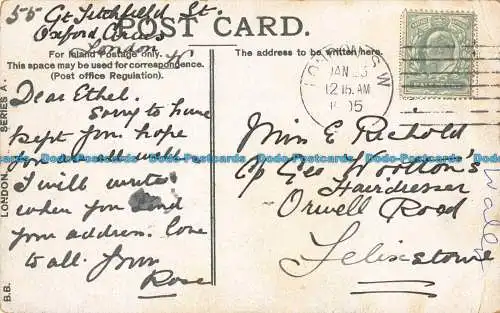 55 Gt Titchfield St.
Oxford Circus
London
POST CARD.
For Inland Postage only.
This space may be used for correspondence.
(Post office Regulation).
The address to be written here.
LONDON S.W
JAN 23
12.15 AM
05
Dear Ethel.
Sorry to have
kept you hope
you are all well
I will write
when you send
your address. love
to all. from
Rose
Miss E Richold
C/o Geo Wootton's
Hairdresser
Orwell Road
Felixstowe
Wales
B.B. LONDON SERIES A.